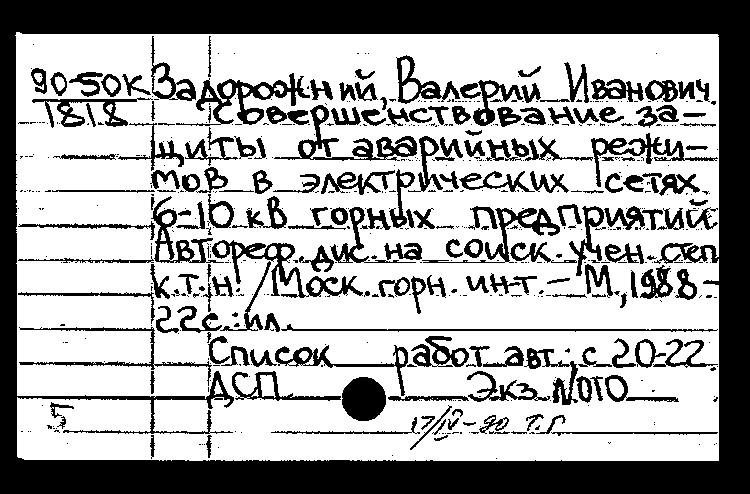 90-50К Задорожний, Валерий Иванович.
1818 Совершенствование за-
щиты от аварийных режи-
мов в электрических сетях
6-10 кВ горных предприятий
Автореф. дис. на соиск. учен. степ
к.т.н. / Моск. горн. ин-т. – М., 1988 –
22с.: ил.
Список работ авт.: с 20-22.
ДСП Экз. №070
5 17/IV-90 Т.Г.